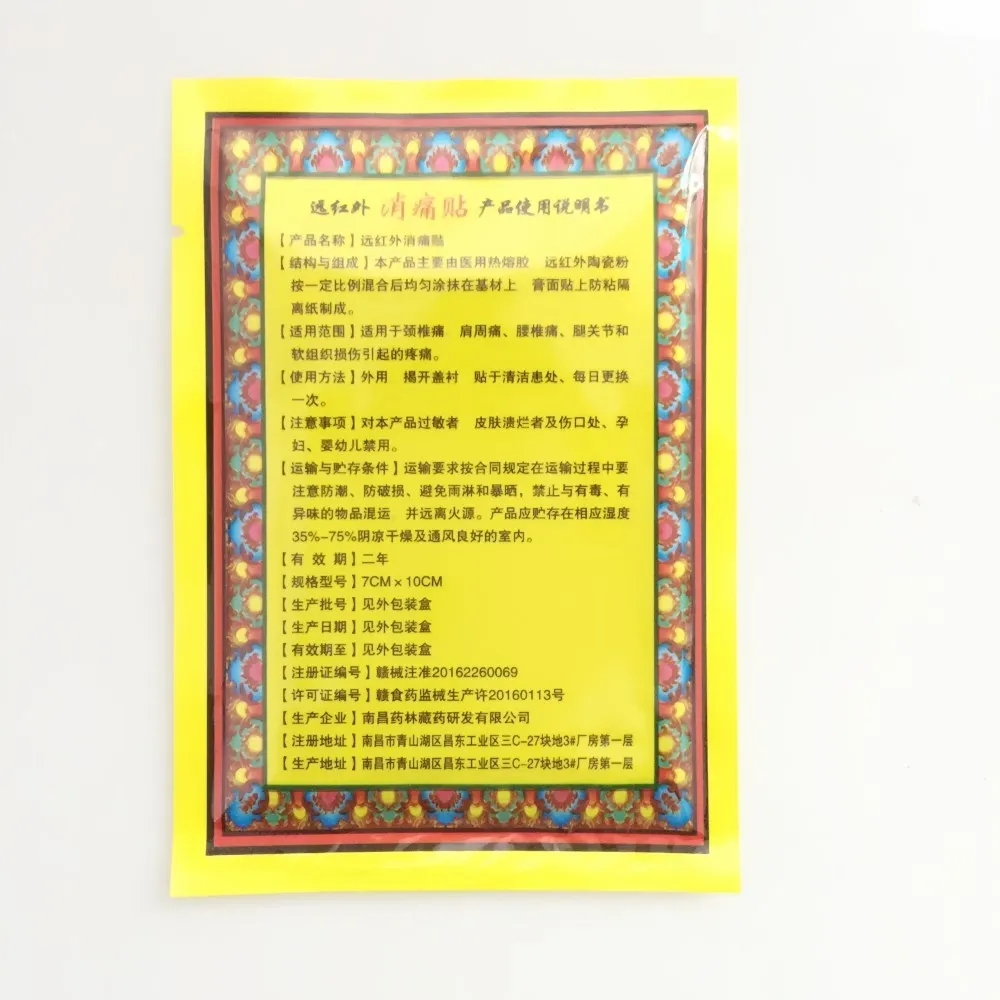 远红外 消痛贴 产品使用说明书
【产品名称】远红外消痛贴
【结构与组成】本产品主要由医用热熔胶 远红外陶瓷粉
按一定比例混合后均匀涂抹在基材上 膏面贴上防粘隔
离纸制成。
【适用范围】适用于颈椎痛 肩周痛、腰椎痛、腿关节和
软组织损伤引起的疼痛。
【使用方法】外用 揭开盖衬 贴于清洁患处、每日更换
一次。
【注意事项】对本产品过敏者 皮肤溃烂者及伤口处、孕
妇、婴幼儿禁用。
【运输与贮存条件】运输要求按合同规定在运输过程中要
注意防潮、防破损、避免雨淋和暴晒，禁止与有毒、有
异味的物品混运 并远离火源。产品应贮存在相应湿度
35%-75%阴凉干燥及通风良好的室内。
【有 效 期】二年
【规格型号】7CM×10CM
【生产批号】见外包装盒
【生产日期】见外包装盒
【有效期至】见外包装盒
【注册证编号】赣械注准20162260069
【许可证编号】赣食药监械生产许20160113号
【生产企业】南昌药林藏药研发有限公司
【注册地址】南昌市青山湖区昌东工业区三C-27块地3#厂房第一层
【生产地址】南昌市青山湖区昌东工业区三C-27块地3#厂房第一层